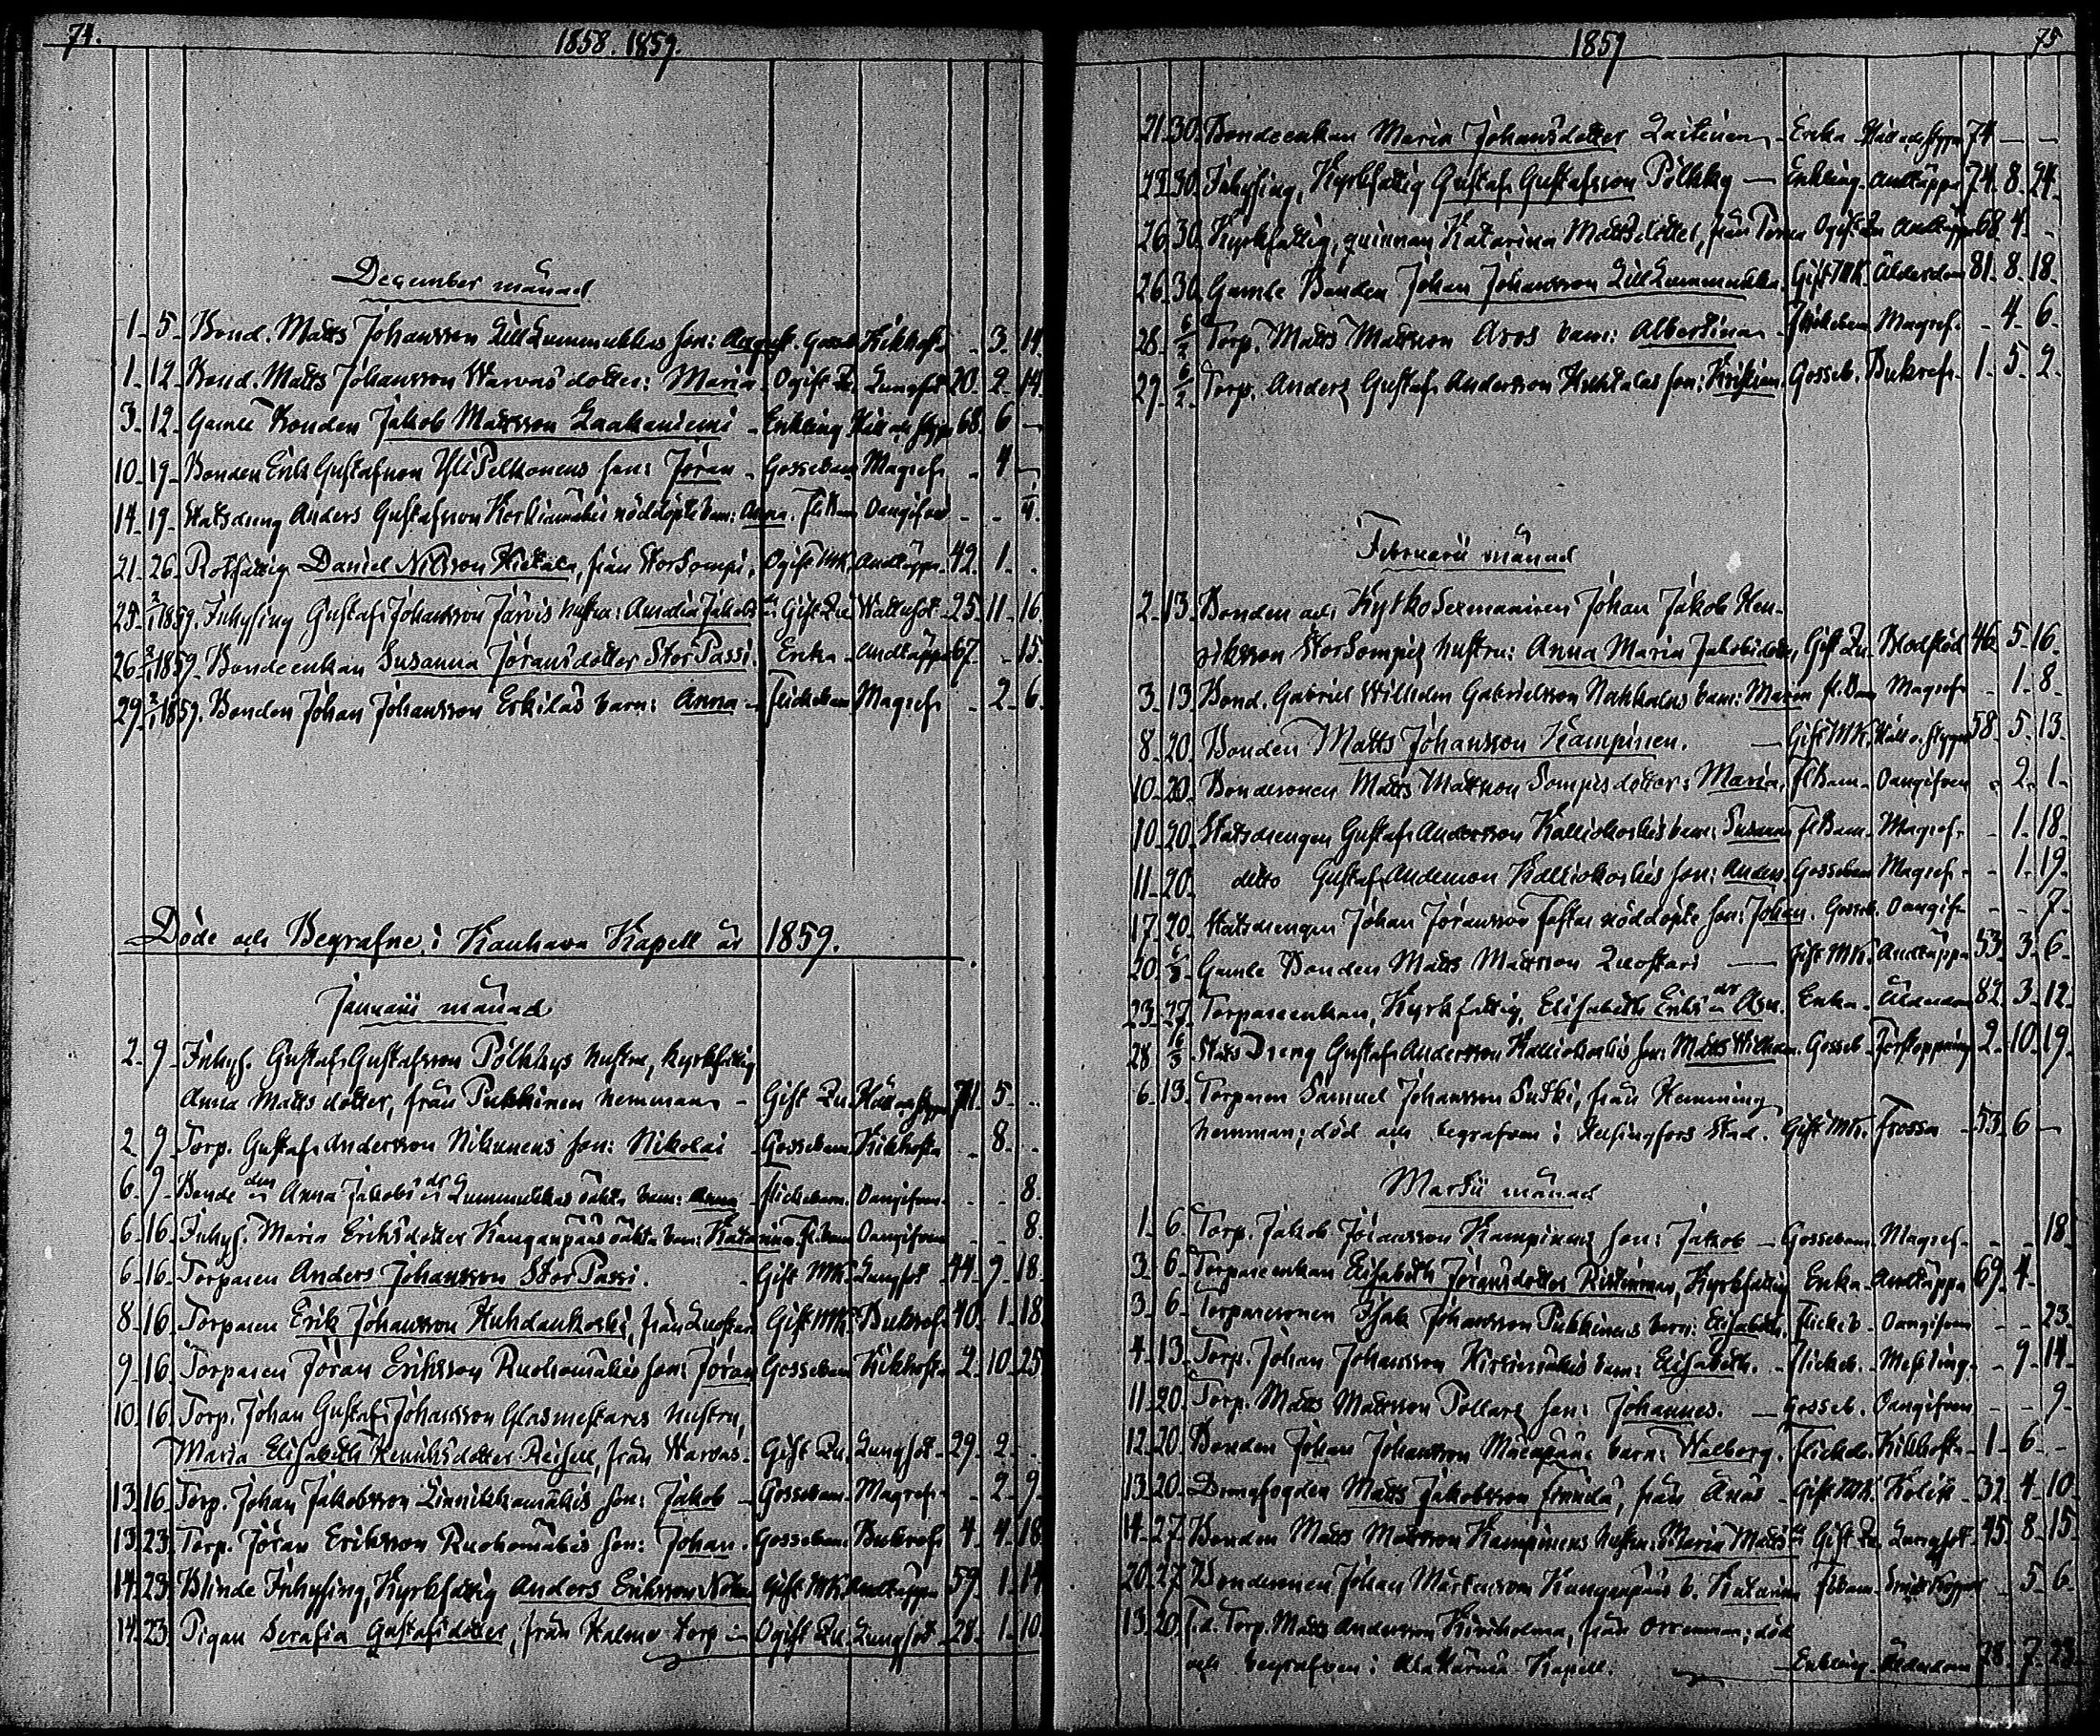 74.
1858. 1859.
December månad
1. 5. Bond. Matts Johansson LillLummukkas son: August. Gosseb. Kikhosta - 3. 14.
1. 12. Bond. Matts Johansson Warvas dotter: Maria. Ogift Qu. Lungsot 20. 2. 14.
3. 12. Gamle Bonden Jakob Mattsson Laakaniemi - Enkling Håll och Stygn 68. 6. -
10. 19. Bonden Erik Gustafsson YliPelkonens son: Jöran - Gossebarn Magref. - 4. -
14. 19. Statsdreng Anders Gustafsson Korkiamäkis nöddöpta barn: Anna. Fl. Barn Oangifven - -
21. 26. Rotfattig Daniel Nilsson Hietala, från StorSompi. Ogift MK. Andtäppa 42. 1. -
25. 2/1 1859. Inhysing Gustaf Johansson Järvis hustru: Amalia Jakobs dr Gift Qu. Wattusot 25. 11. 16.
26. 2/1 1859. Bondeenkan Susanna Jöransdotter StorPassi. Enka - Andtäppa 67. - 15.
29. 2/1 1859. Bonden Johan Johansson Eskilas barn: Anna - Flickebarn Magref. - 2. 6.
Döde och Begrafne i Kauhava Kapell år 1859.
Januarii månad
2. 9. Inhys. Gustaf Gustafsson Pölkkys hustru, kyrkfattig
Anna Mattsdotter, från Pukkinen hemman - Gift Qu. Håll och stygn 71. 5. -
2. 9. Torp. Gustaf Andersson Nikunens son: Nikolai - Gossebarn Kikhosta - 8. -
6. 9. Bonde den Anna Jakobs dr Lummukkas oäkta barn: Anna - Flickebarn. Oangifven - - 8.
6. 16. Inhys. Maria Eriksdotter Kanganpääs oäkta barn: Katarina Fl. barn Oangifven - - 8.
6. 16. Torparen Anders Johansson StorPassi. - Gift MK. Lungsot 44. 9. 18.
8. 16. Torparen Erik Johansson Huhdankoski, från Luostari Gift MK. Bukref. 40. 1. 18.
9. 16. Torparen Jöran Eriksson Ruohomäkis son: Jöran Gossebarn Kikhosta 2. 10. 25.
10. 16. Torp. Johan Gustaf Johansson Glasmestares hustru,
Maria Elisabeth Henriksdotter Reisell, från Warvas - Gift Qu. Lungsot 29. 2. -
13. 16. Torp. Johan Jakobsson Linnikkamäkis son: Jakob - Gossebarn Magref. - 2. 9.
13. 23. Torp. Jöran Eriksson Ruohomäkis son: Johan. Gossebarn Bukref. 4. 4. 18.
14. 23. Blinde Inhysing, Kyrkfattig Anders Eriksson Gift MK. Andtäppa 59. 1. 14
14. 23. Pigan Serafia Gustafsdotter, från Kalmu torp - Ogift Qu. Lungsot 28. 1. 10.
1859
75
21. 30. Bondeenkan Maria Johansdotter Laitinen - Enka Håll och stygn 74 - -
23. 30. Inhysing, Kyrkfattig Gustaf Gustafsson Pölkky - Enkling Andtäppa 74. 8. 24.
26. 30. Kyrkfattig, quinnan Katarina Mattsdotter, från Ogift Qu Andtäppa 68. 4. -
26. 30. Gamle Bonden Johan Johansson LillLummukka. Gift MK. Ålderdom 81. 8. 18.
28. 6/2 Torp. Matts Mattsson Aros barn: Albertina - Flickebarn Magref. - 4. 6.
29. 6/2 Torp. Anders Gustaf Andersson Huhtalas son: Kristian. Gosseb. Bukref. 1. 5. 2.
Februarii månad
2. 13. Bonden och Kyrko Sexmannen Johan Jakob Hen-
riksson StorSompis hustru: Anna Maria Jakobsdotter, Gift Qu. Blodstöd 46. 5. 16.
3. 13. Bond. Gabriel Wilhelm Gabrielsson Nahkalas barn: Maria fl. Barn Magref. - 1. 8.
8. 20. Bonden Matts Johansson Kampinen. - Gift MK. Håll o. stygn 58. 5. 13.
10. 20. Bondesonen Matts Mattsson Sompis dotter: Maria. fl. Barn. Oangifven - 2. 1.
10. 20. Statsdrengen Gustaf Andersson Kalliokoskis barn: Susanna fl. Barn. Magref. - 1. 18.
11. 20. ditto Gustaf Andersson Kalliokoskis son: Anders. Gossebarn Magref. - 1. 19.
17. 20. Statsdrengen Johan Jöransson nöddöpte son: Johan. Gosseb. Oangif. - - 7.
20. 6/3 Gamle Bonden Matts Mattsson Luostari - Gift MK. Andtäppa 53. 3. 6.
23. 27. Torpareenkan, Kyrkfattig, Elisabeth Eriks dr Enka - Ålderdom 82. 3. 12.
28. Stats Dreng Gustaf Andersson Kalliokoskis son: Matts Wilhelm. Gosseb. Förstoppning 2. 10. 19.
6. 13. Torparen Samuel Johansson Suski, från Hemming
hemman; död och begrafven i Helsingfors Stad. Gift MK. Frossa - 53. 6. -
Martii månad
1. 6. Torp. Jakob Jöransson Kampinens son: Jakob - Gossebarn. Magref. - - 18.
3. 6. Torpareenkan Elisabeth Jöransdotter Ristiinmaa, Kyrkfattig Enka - Andtäppa 69. 4. -
3. 6. Torparesonen Isak Johansson Pukkinens barn: Elisabeth. Flickeb. Oangifven - - 23.
4. 13. Torp. Johan Johansson barn: Elisabeth. - Flickeb. Messling. - 9. 14.
11. 20. Torp. Matts Mattsson Pollars son: Johannes. - Gosseb. Oangifven - - 9.
12. 20. Bonden Johan Johansson Mäenpääs barn: Walborg. Flickeb. Kikhosta 1. 6. -
13. 20. Matts Jakobsson Frända, från Änäs - Gift MK. Kolik - 32. 4. 10.
14. 27. Bonden Matts Mattsson Kampinens hustru: Maria Matts dr Gift Qu. Lungsot 45. 8. 15.
20. 27. Bondesonen Johan Mårtensson Kanganpääs b. Katarina Fl. barn. - 5. 6.
13. 20. F.d. Torp. Matts Andersson Kiviholma, från Orrenmaa; död
och begrafven i Alahärmä Kapell. - Enkling. Ålderdom 78. 7. 23.